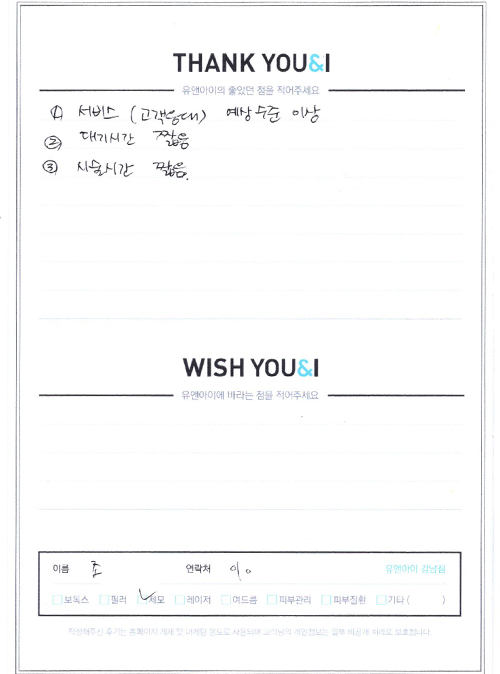 THANK YOU&I
유앤아이의 좋았던 점을 적어주세요
① 서비스 (고객응대) 예상수준 이상
② 대기시간 짧음
③ 시술시간 짧음.
WISH YOU&I
유앤아이에 바라는 점을 적어주세요
이름 조 연락처 010 유앤아이 강남점
보톡스 필러 제모 레이저 여드름 피부관리 피부질환 기타 ( )
작성해주신 후기는 홈페이지 게재 및 마케팅 용도로 사용되며 고객님의 개인정보는 일부 비공개 처리로 보호됩니다.